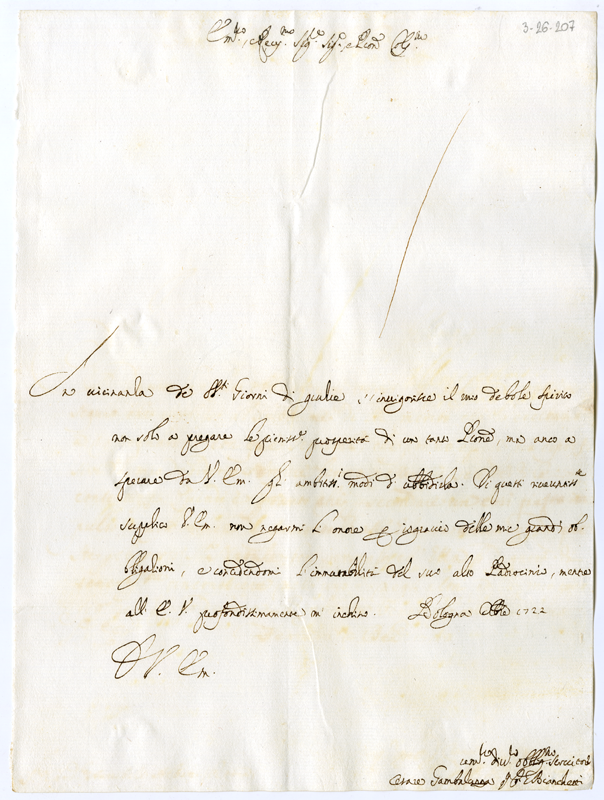 3-26-207
Em.mo e Rev.mo Sig.re Sig.re e Pron Col.mo
In vicinanza de S.ti Giorni di giulie s'invigorisce il mio debole spirito
non solo a pregare le pieniss.e prosperità di un tanto Prone, ma anco a
sperare da V. Em. gl' ambitiss.i modi d' ubbidirla. Di questi
supplico V. Em. non negarmi l'onore per isgravio delle mie grandi ob-
bligazioni, e concedendomi l'immutabilità del suo alto Padrocinio, mentre
all' E. V. profondissimamente m' inchino. Bologna Xbre 1722
D V. Em.
um.o div.o obblig.mo
Gambalunga Bianchetti